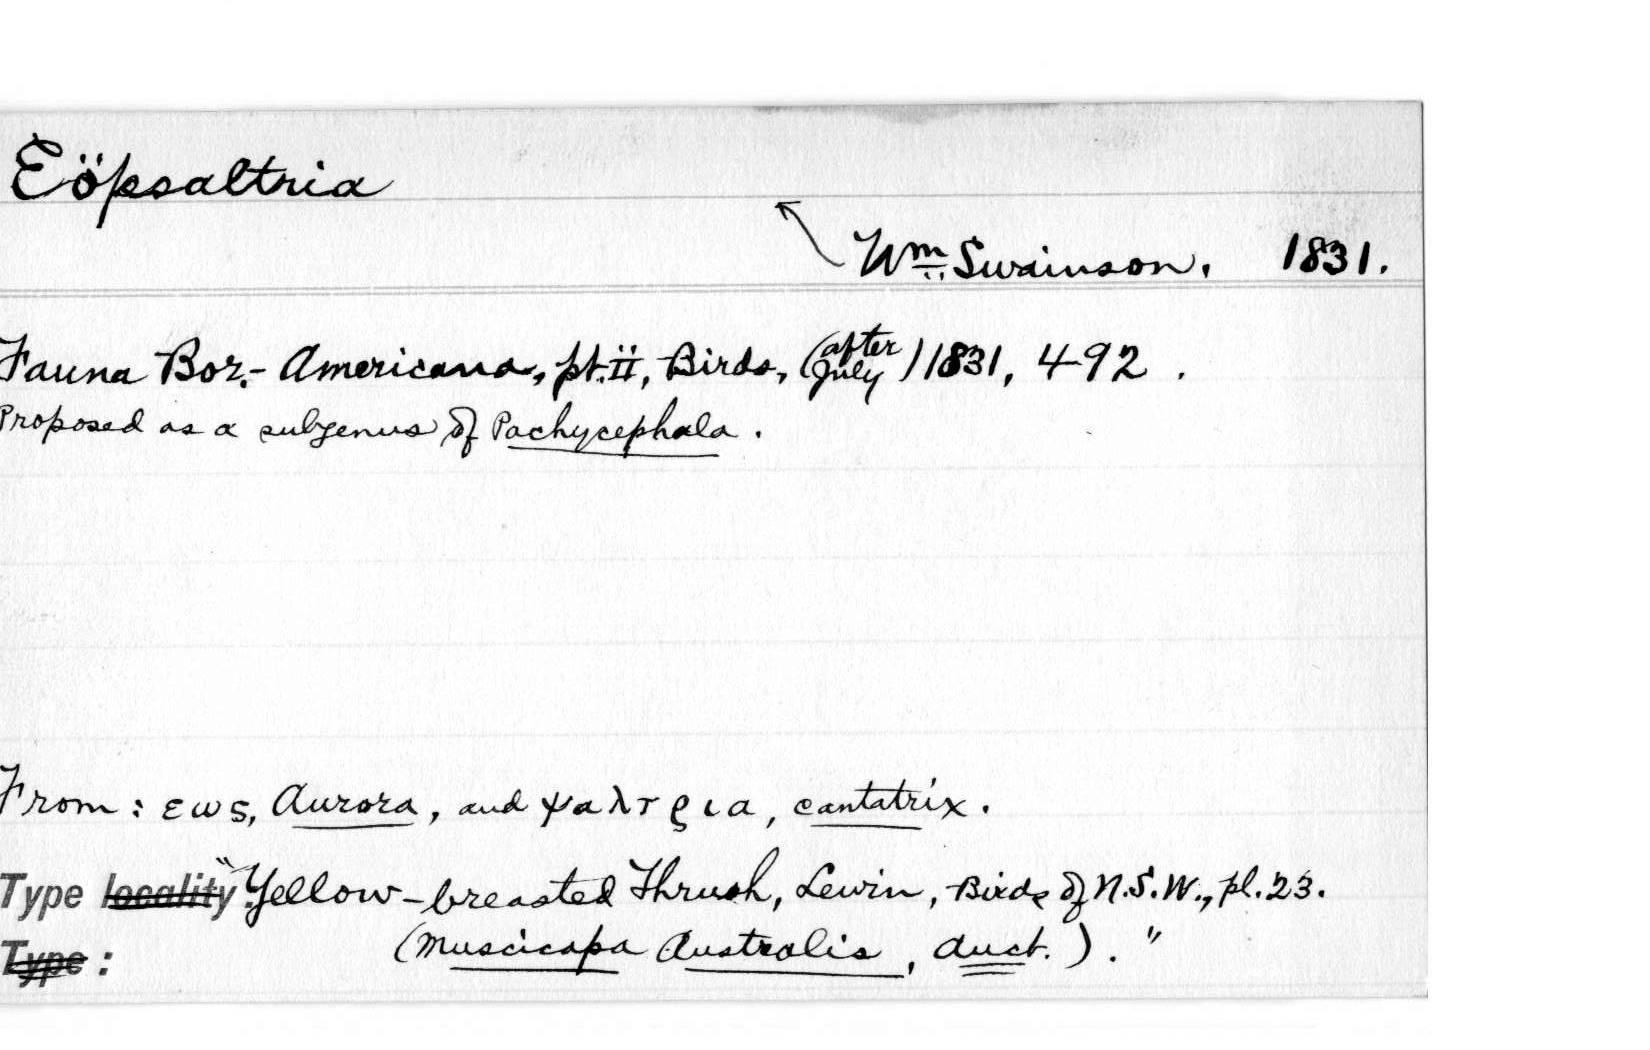 Eöpsaltria
Wm. Swainson. 1831.
Fauna Bor.- Americana, pt. ii, Birds, (after July) 1831, 492.
Proposed as a subgenus of Pachycephala.
From: εως, Aurora, and ψαλτρια, cantatrix.
Type locality: "Yellow-breasted Thrush, Lewin, Birds of N.S.W., pl. 23.
Type: (Muscicapa Australis, Auct.)."